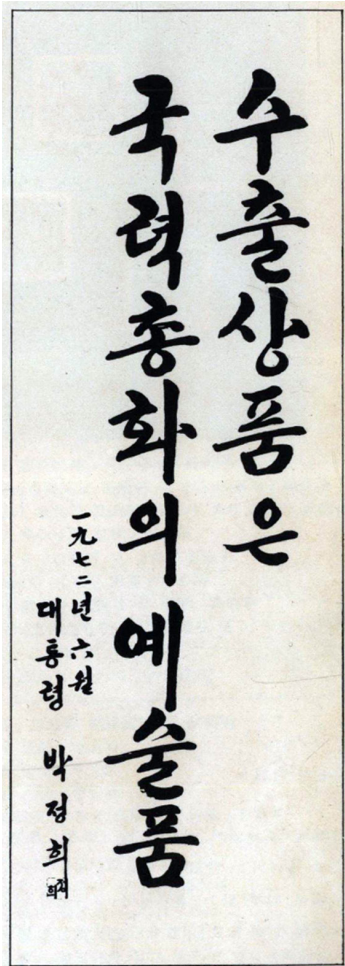 수출상품은
국력총화의 예술품
一九七二년 六월
대통령 박정희